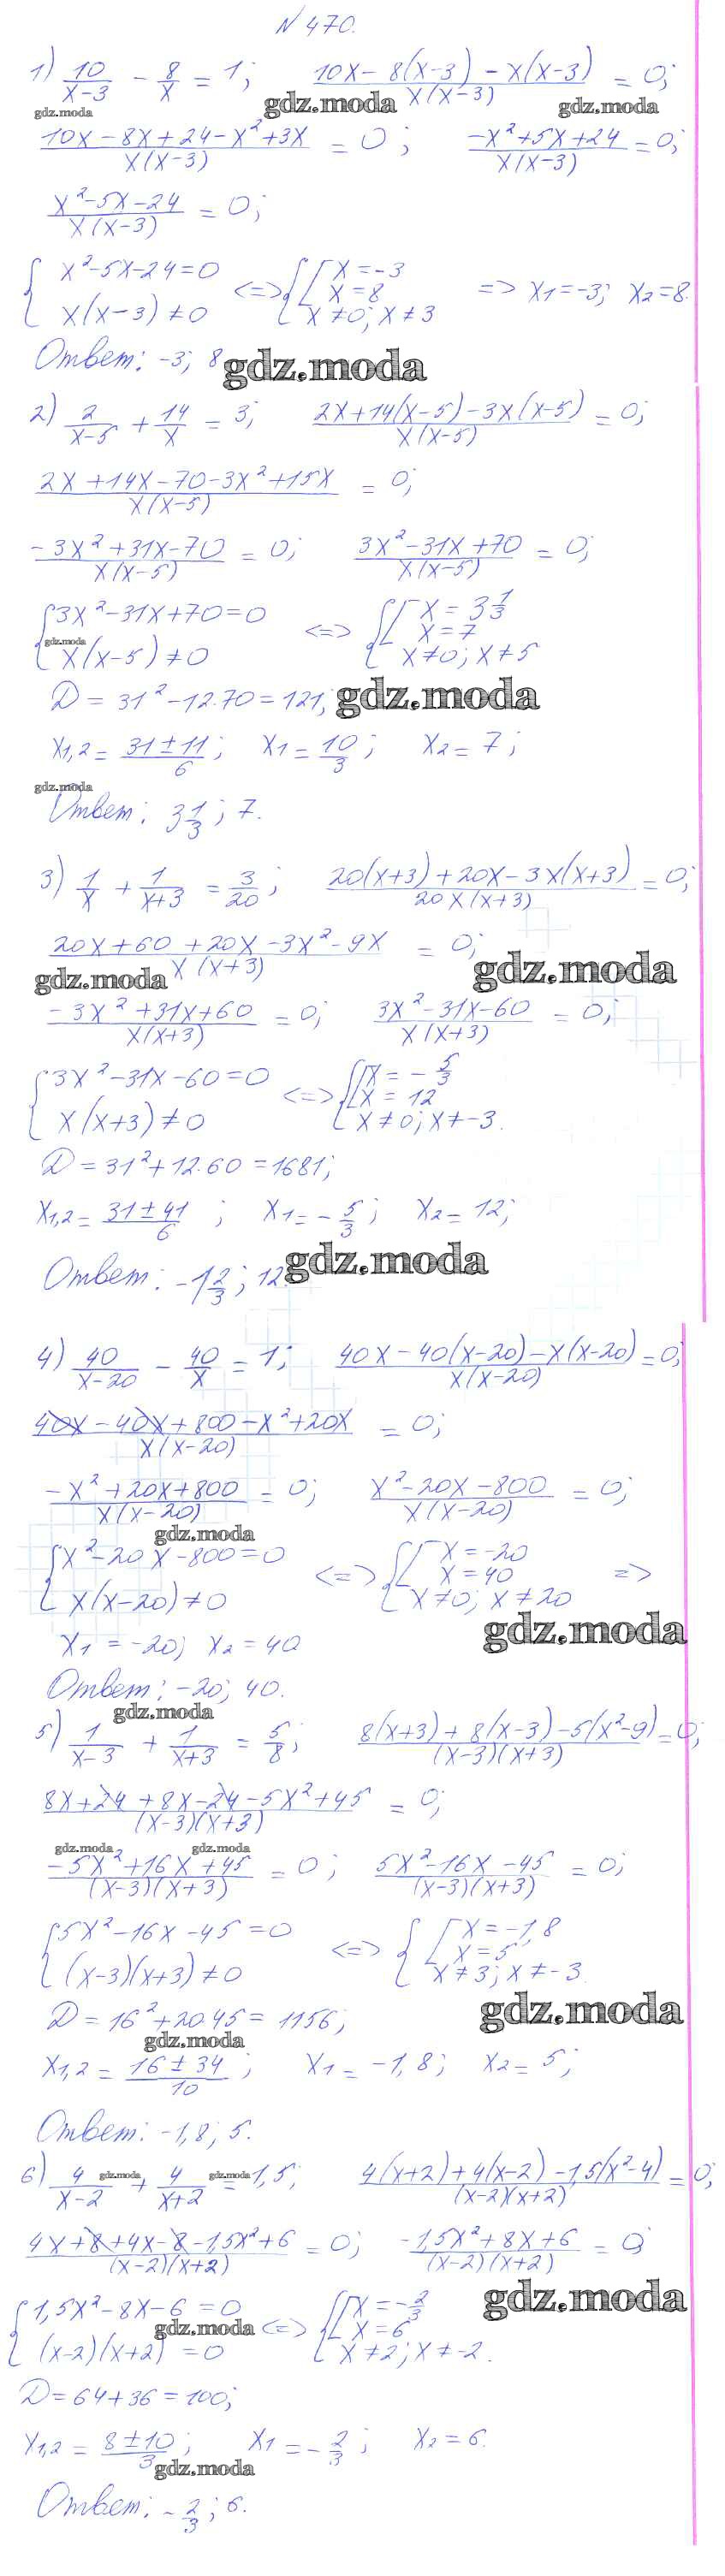 N 470.
1) 10/(x-3) - 8/x = 1; (10x - 8(x-3) - x(x-3))/(x(x-3)) = 0;
gdz.moda gdz.moda gdz.moda
(10x - 8x + 24 - x² + 3x)/(x(x-3)) = 0; (-x² + 5x + 24)/(x(x-3)) = 0;
(x² - 5x - 24)/(x(x-3)) = 0;
{ x² - 5x - 24 = 0 <=> { [ x = -3
x(x-3) ≠ 0 x = 8
x ≠ 0; x ≠ 3 => x₁ = -3; x₂ = 8.
Ответ: -3; 8 gdz.moda
2) 2/(x-5) + 14/x = 3; (2x + 14(x-5) - 3x(x-5))/(x(x-5)) = 0;
(2x + 14x - 70 - 3x² + 15x)/(x(x-5)) = 0;
(-3x² + 31x - 70)/(x(x-5)) = 0; (3x² - 31x + 70)/(x(x-5)) = 0;
{ 3x² - 31x + 70 = 0 <=> { [ x = 3 1/3
gdz.moda x = 7
x(x-5) ≠ 0 x ≠ 0; x ≠ 5
D = 31² - 12·70 = 121; gdz.moda
x₁,₂ = (31 ± 11)/6; x₁ = 10/3; x₂ = 7;
gdz.moda
Ответ: 3 1/3; 7.
3) 1/x + 1/(x+3) = 3/20; (20(x+3) + 20x - 3x(x+3))/(20x(x+3)) = 0;
(20x + 60 + 20x - 3x² - 9x)/(x(x+3)) = 0;
gdz.moda gdz.moda
(-3x² + 31x + 60)/(x(x+3)) = 0; (3x² - 31x - 60)/(x(x+3)) = 0;
{ 3x² - 31x - 60 = 0 <=> { [ x = -5/3
x(x+3) ≠ 0 x = 12
x ≠ 0; x ≠ -3.
D = 31² + 12·60 = 1681;
x₁,₂ = (31 ± 41)/6; x₁ = -5/3; x₂ = 12;
Ответ: -1 2/3; 12. gdz.moda
4) 40/(x-20) - 40/x = 1; (40x - 40(x-20) - x(x-20))/(x(x-20)) = 0;
(40x - 40x + 800 - x² + 20x)/(x(x-20)) = 0;
(-x² + 20x + 800)/(x(x-20)) = 0; (x² - 20x - 800)/(x(x-20)) = 0;
gdz.moda
{ x² - 20x - 800 = 0 <=> { [ x = -20
x(x-20) ≠ 0 x = 40 =>
x ≠ 0; x ≠ 20
gdz.moda
x₁ = -20; x₂ = 40
Ответ: -20; 40.
gdz.moda
5) 1/(x-3) + 1/(x+3) = 5/8; (8(x+3) + 8(x-3) - 5(x²-9))/((x-3)(x+3)) = 0;
(8x + 24 + 8x - 24 - 5x² + 45)/((x-3)(x+3)) = 0;
gdz.moda gdz.moda
(-5x² + 16x + 45)/((x-3)(x+3)) = 0; (5x² - 16x - 45)/((x-3)(x+3)) = 0;
{ 5x² - 16x - 45 = 0 <=> { [ x = -1,8
(x-3)(x+3) ≠ 0 x = 5
x ≠ 3; x ≠ -3.
D = 16² + 20·45 = 1156; gdz.moda
gdz.moda
x₁,₂ = (16 ± 34)/10; x₁ = -1,8; x₂ = 5;
Ответ: -1,8; 5.
6) 4/(x-2) gdz.moda + 4/(x+2) gdz.moda = 1,5; (4(x+2) + 4(x-2) - 1,5(x²-4))/((x-2)(x+2)) = 0;
(4x + 8 + 4x - 8 - 1,5x² + 6)/((x-2)(x+2)) = 0; (-1,5x² + 8x + 6)/((x-2)(x+2)) = 0
gdz.moda
{ 1,5x² - 8x - 6 = 0 <=> { [ x = -2/3
gdz.moda x = 6
(x-2)(x+2) = 0 x ≠ 2; x ≠ -2.
D = 64 + 36 = 100;
x₁,₂ = (8 ± 10)/3; x₁ = -2/3; x₂ = 6.
gdz.moda
Ответ: -2/3; 6.